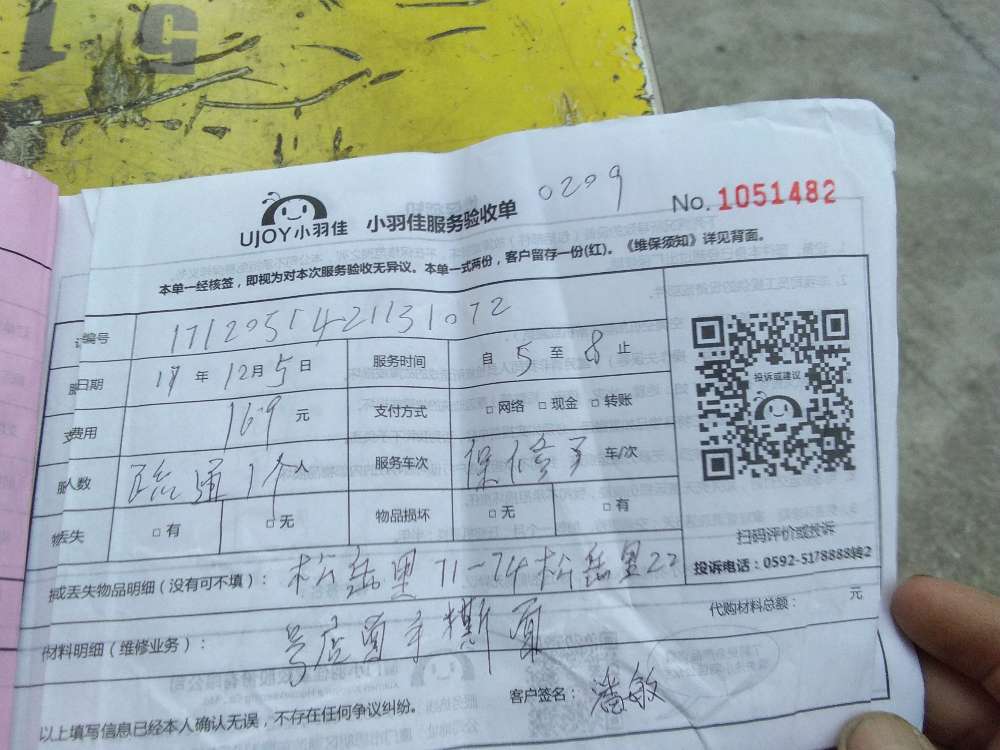 51
0209
UJOY小羽佳 小羽佳服务验收单 No. 1051482
本单一经核签，即视为对本次服务验收无异议。本单一式两份，客户留存一份(红)。《维保须知》详见背面。
编号 1712051421131072
日期 17 年 12月 5 日 服务时间 自 5 至 8 止
费用 169 元 支付方式 □ 网络 □ 现金 □ 转账
人数 疏通1个 人 服务车次 保1修了 车/次
丢失 □ 有 □ 无 物品损坏 □ 无 □ 有
投诉或建议
扫码评价或投诉
投诉电话：0592-5178888转2
或丢失物品明细（没有可不填）： 松岳里 71-74 松岳里22
材料明细（维修业务）： 号店 代购材料总额： 元
以上填写信息已经本人确认无误，不存在任何争议纠纷。 客户签名： 潘敏